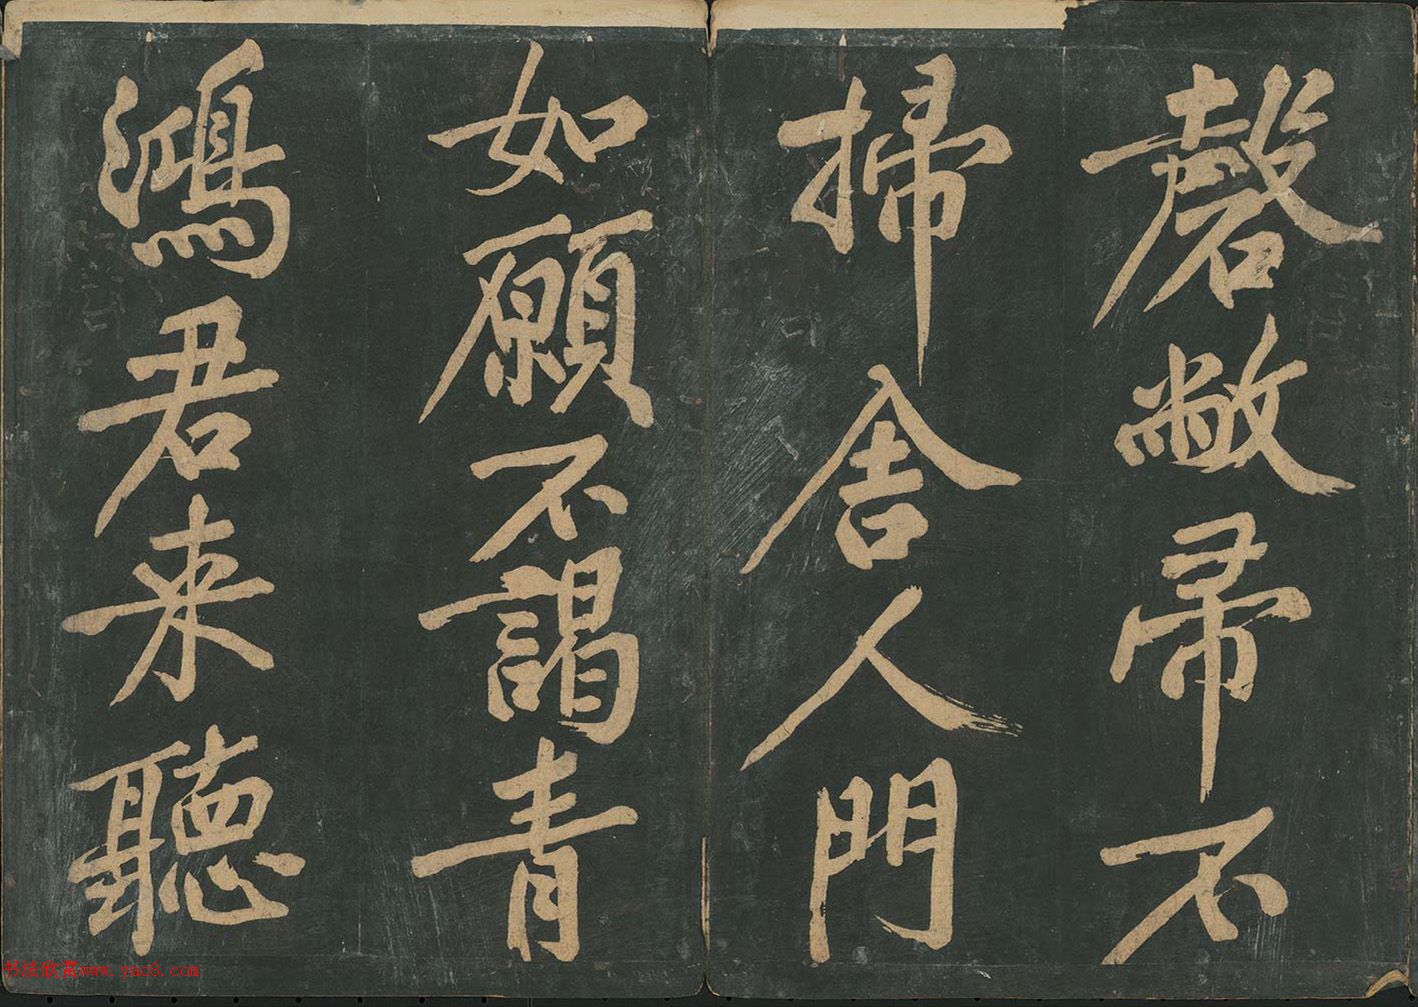 磬敝帚不
掃舍人門
如願不謁青
鴻君来聽
书法欣赏www.yac8.com